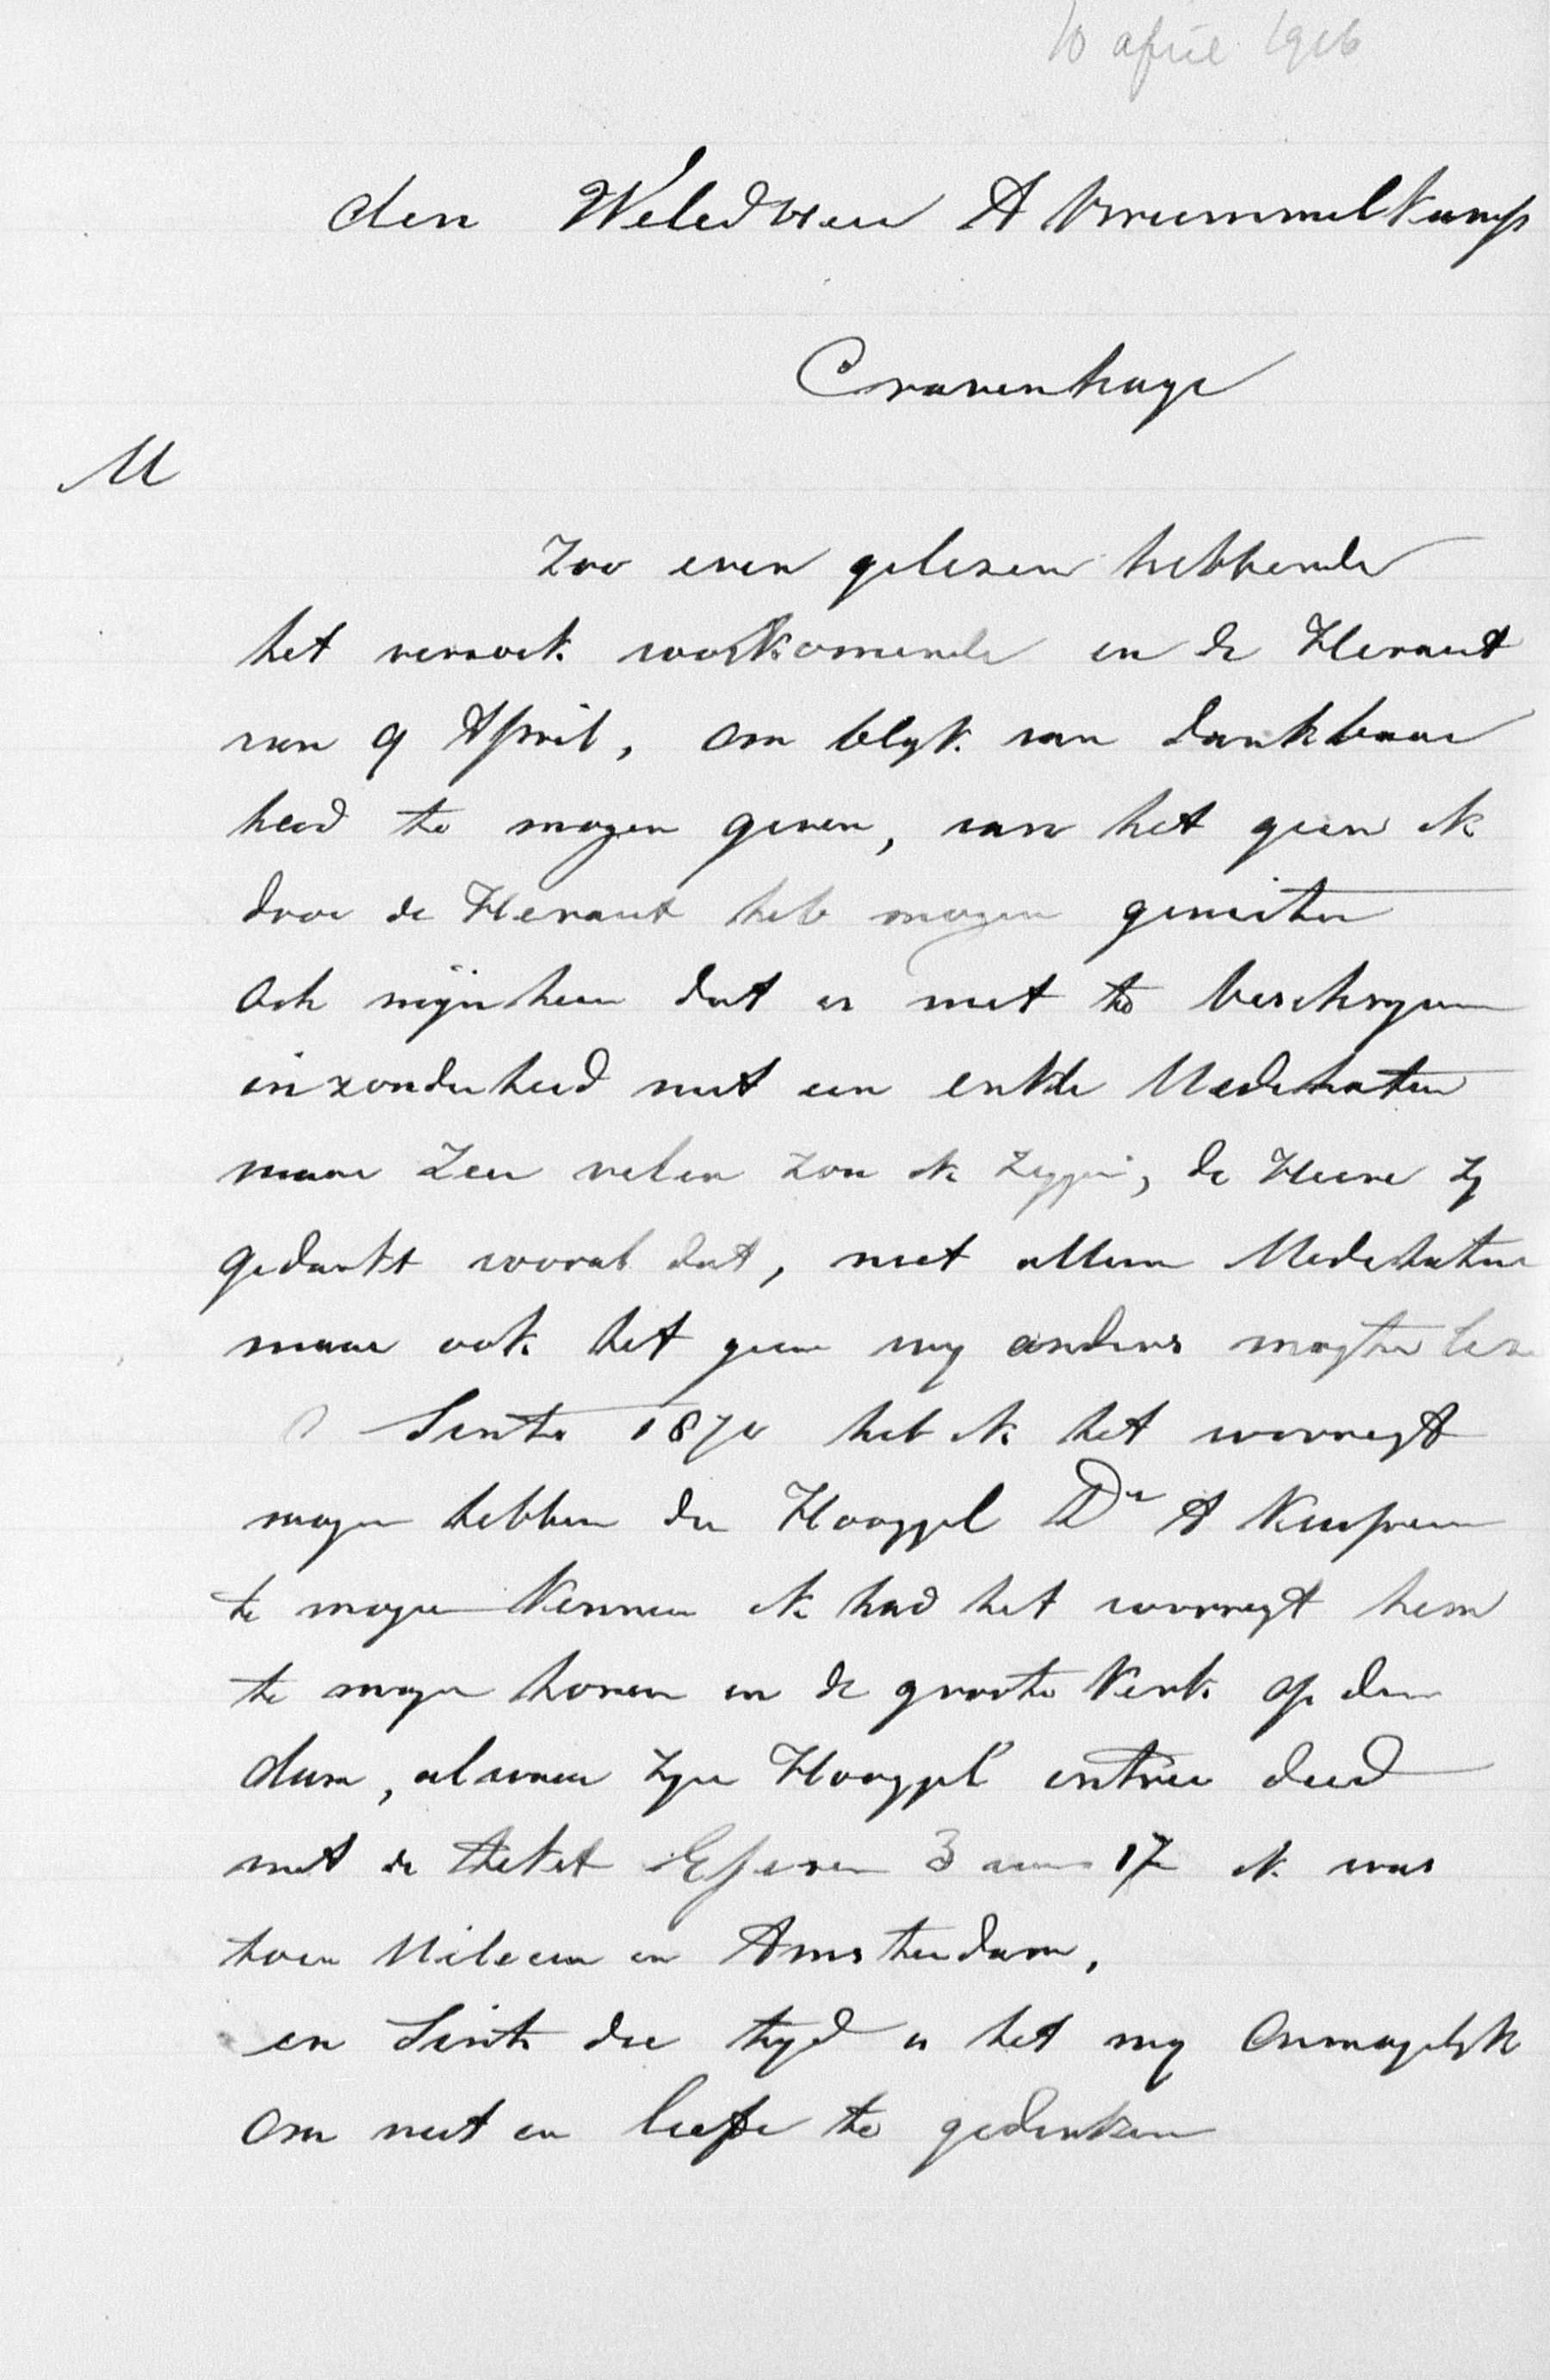 10 april 1916
den WelEd Heer A Brummelkamp
Gravenhage
M
Zoo even gelezen hebbende
het versoek voorkomende in de Heraut
van 9 April, om blyk van dankbaar
heid te mogen geven, van het geen ik
door de Heraut heb mogen genieten
Och mijnheer dat is niet te beschryven
inzonderheid niet een enkele Meditatien
maar Zeer velen zou ik zeggen, de Heere zy
gedankt vooral dat, niet alleen Meditatien
maar ook het geen wy anders mogten leze
Sints 1870 heb ik het voorregt
mogen hebben den Hooggel Dr A Kuiper
te mogen Kennen ik had het voorregt hem
te mogen horen in de groote Kerk op den
dam, alwaar zyn Hooggel entree deed
met de tekst Efesen 3 vers 17 ik was
toen Milicien in Amsterdam,
en Sints die tyd is het my Onmogelyk
om niet in liefde te gedenken